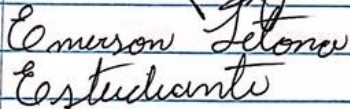 Emerson Letona
Estudiante